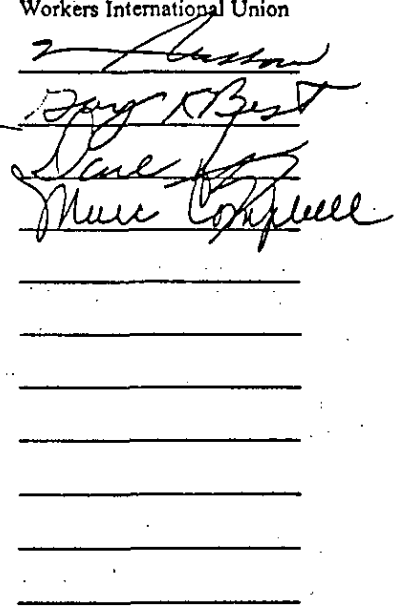 Workers International Union
Gary K Best
Dave
Marc Campbell